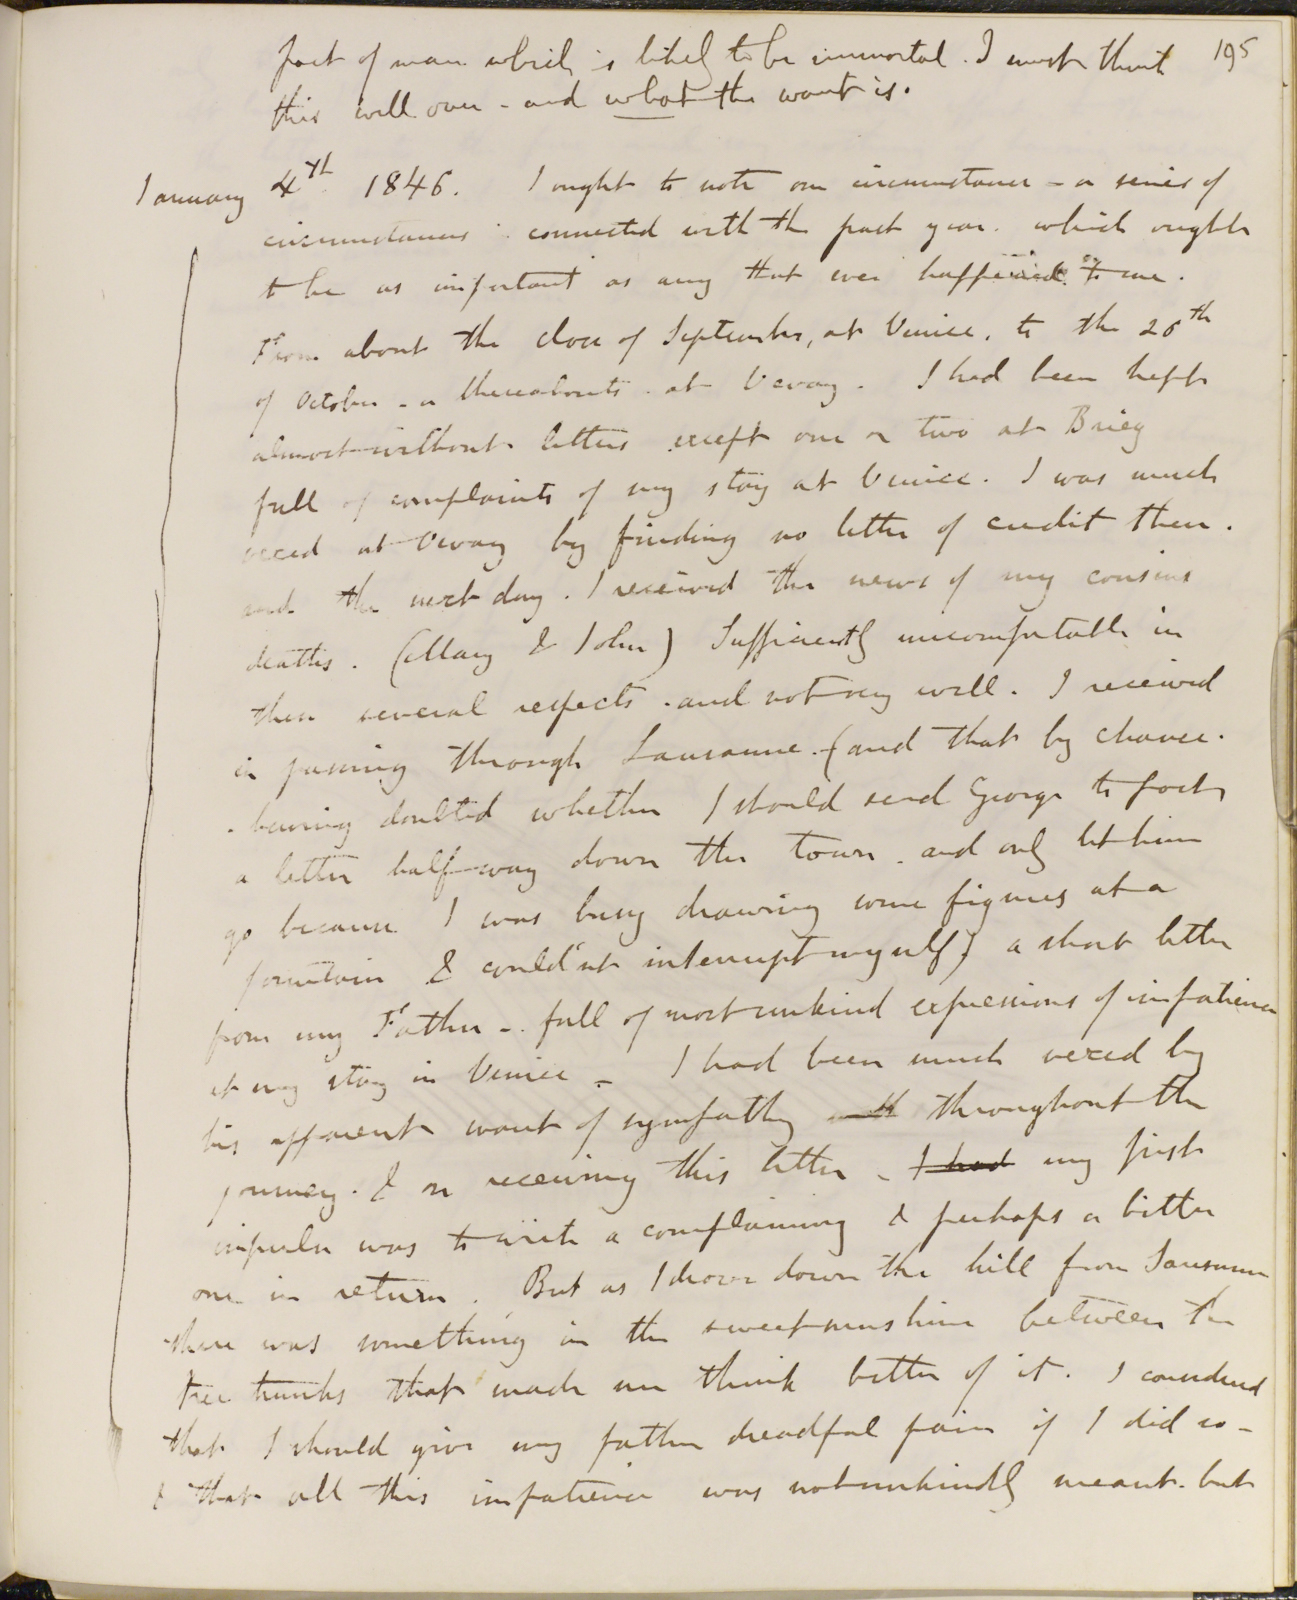 195
part of man which is likely to be immortal. I must think
this well over - and what the want is.
January 4th 1846. I ought to note one circumstance - a series of
circumstances connected with the past year. which ought
to be as important as any that ever happened to me.
From about the close of September, at Venice, to the 26th
of October - or thereabouts - at Vevay. I had been kept
almost without letters except one or two at Brieg
full of complaints of my stay at Venice. I was much
vexed at Vevay by finding no letter of credit there.
and the next day. I received the news of my cousins
deaths. (Mary & John) Sufficiently uncomfortable in
these several respects. and not very well. I received
in passing through Lausanne. (and that by chance.
- having doubted whether I should send George to post
a letter half way down the town. and only let him
go because I was busy drawing some figures at a
fountain & could'nt interrupt myself) a short letter
from my Father - full of most unkind expressions of impatience
at my stay in Venice - I had been much vexed by
his apparent want of sympathy throughout the
journey. & on receiving this letter - I had my first
impulse was to write a complaining & perhaps a bitter
one in return. But as I drove down the hill from Lausanne
there was something in the sweet sunshine between the
tree trunks that made me think better of it. I considered
that I should give my father dreadful pain if I did so -
& that all this impatience was not unkindly meant. but